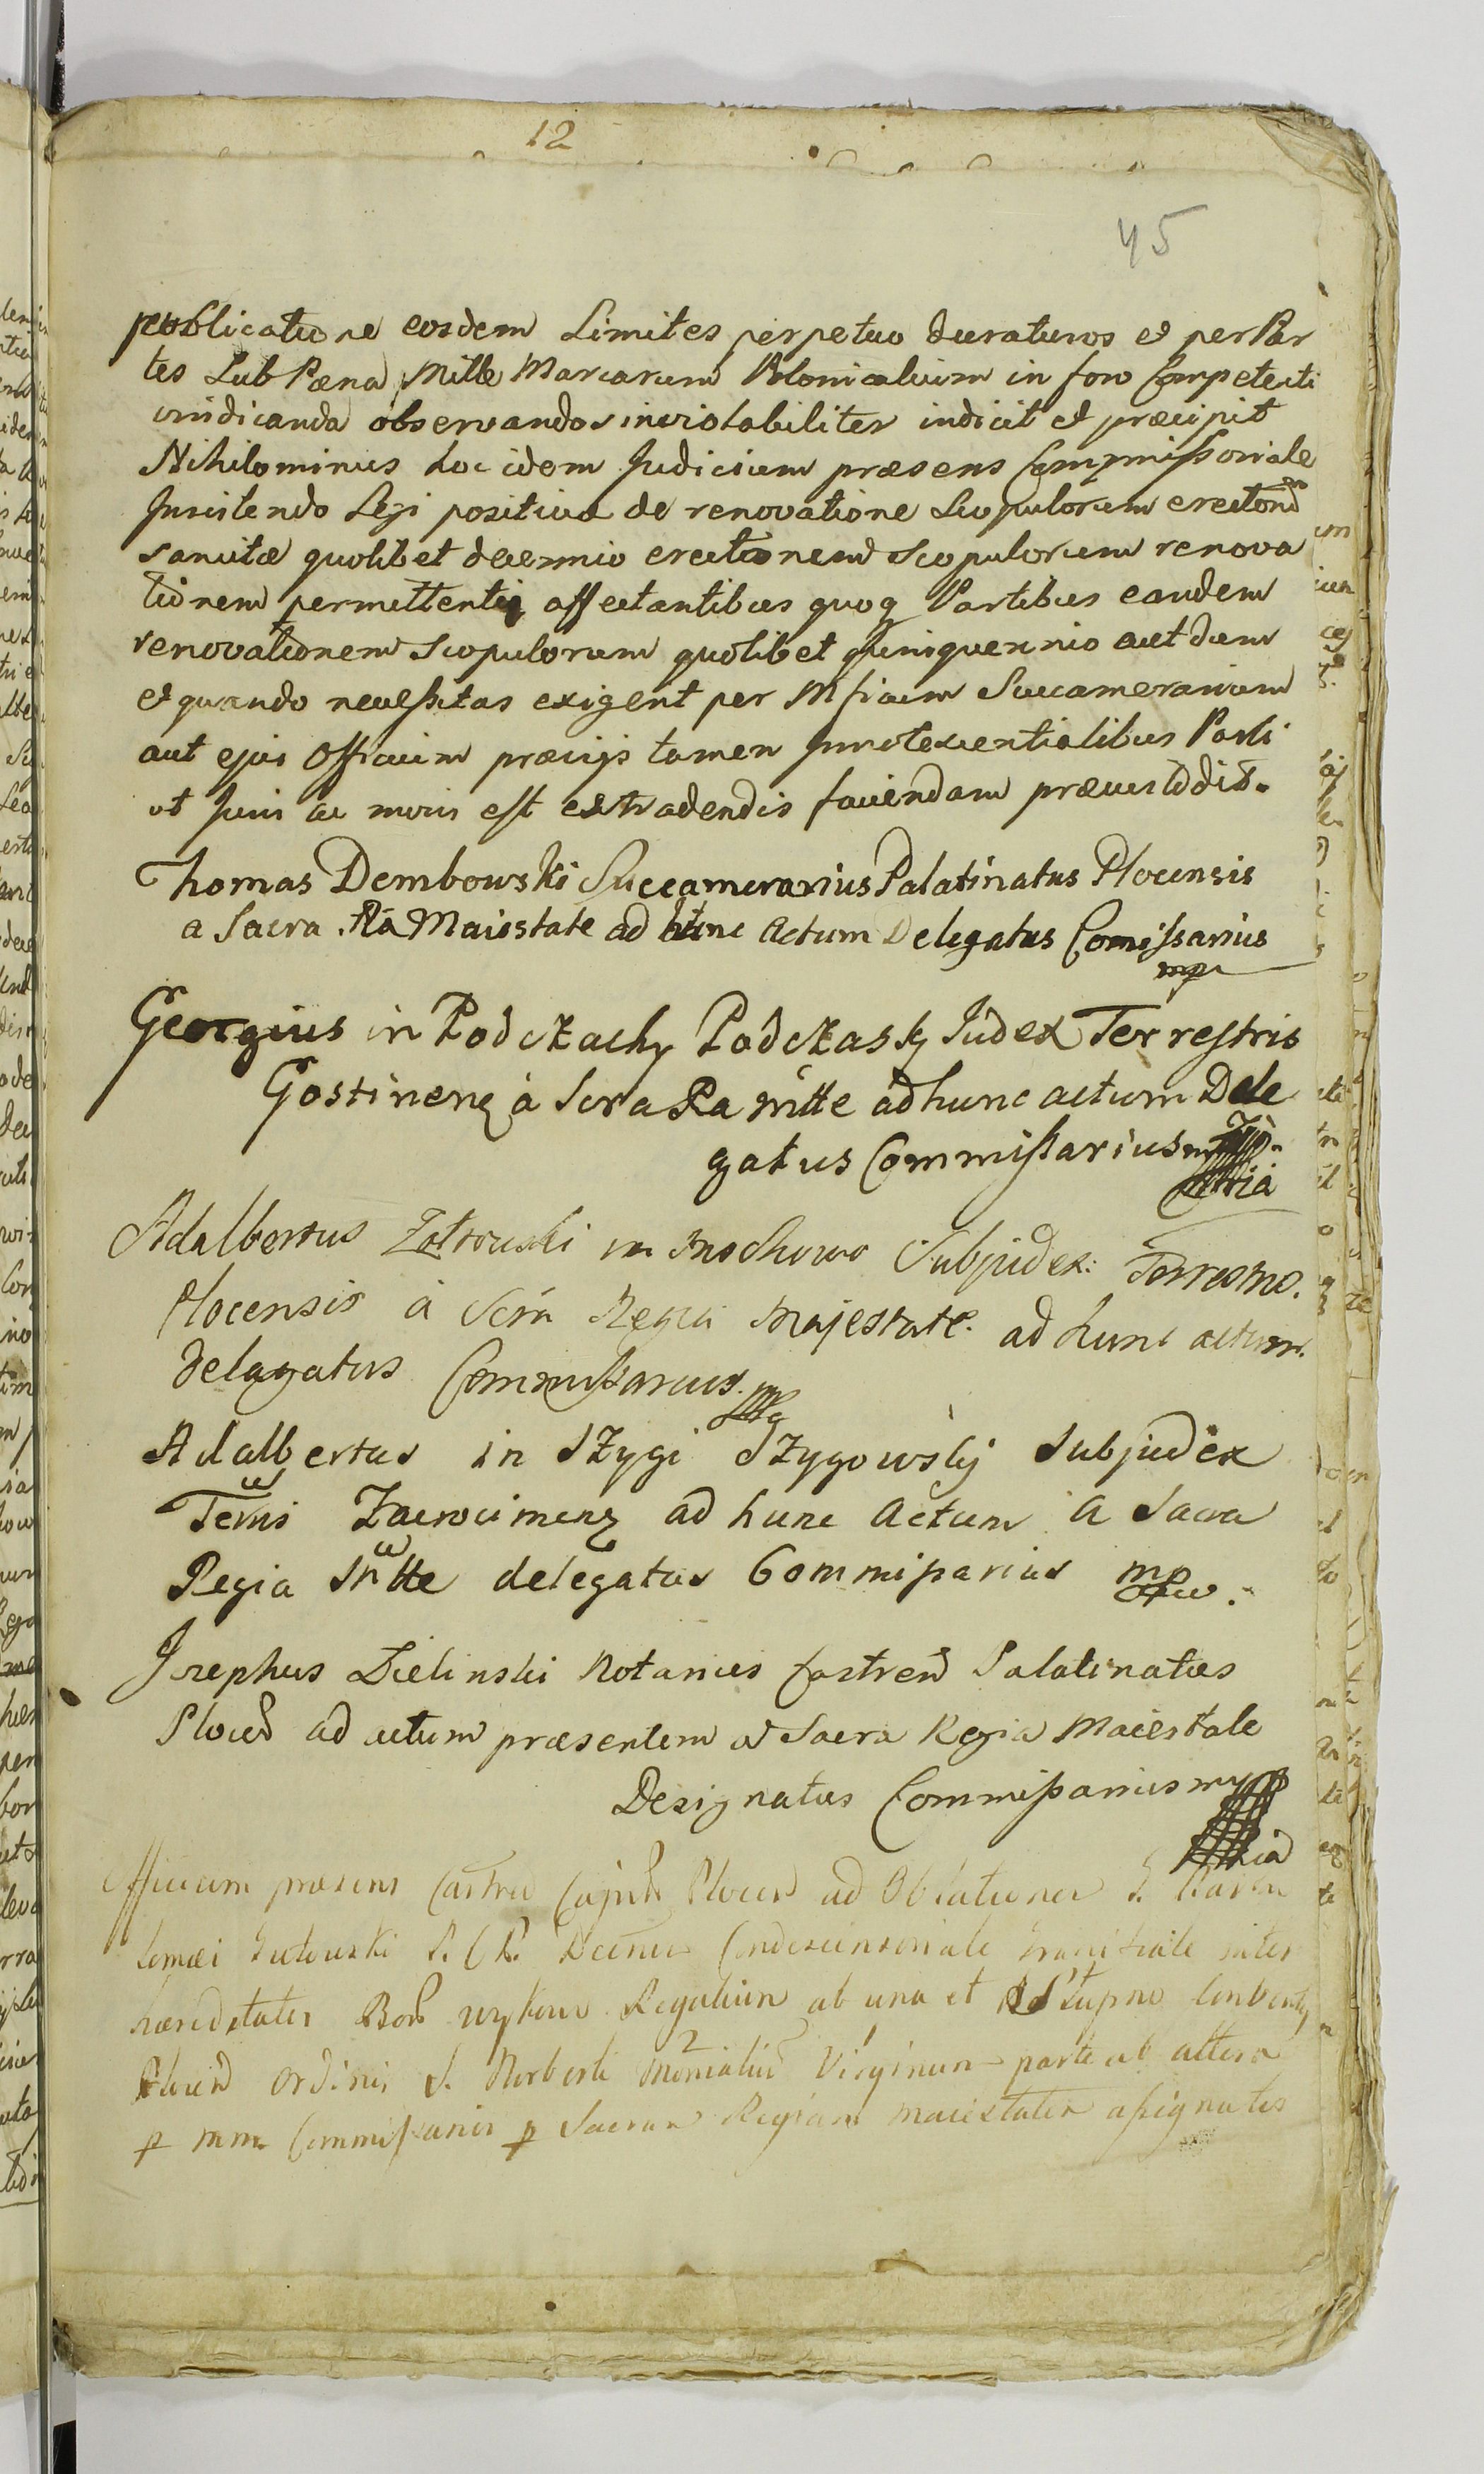 12
45
publicatione eosdem Limites perpetuo duraturos et per Par
tes Sub Pæna Mille Marcarum Polonicalium in foro Competenti
vindicanda observandos inviolabiliter indicit et præcipit
Nihilominus hoc idem Judicium præsens Commissoriale
Insistendo Legi positivæ de renovatione Scopulorum erection
sancitæ quolibet decennio erectionem Scopulorum renova
tionem permittenti affectantibus quoq Partibus eandem
renovationem Scopulorum quolibet quinquennio aut dum
et quando necessitas exigent per Mficum Succamerarium
aut ejus Officium præviis tamen Innotescentialibus Parti
ut Juris ac moris est extradendis faciendam præcustodit.
Thomas Dembowski Succamerarius Palatinatus Plocensis
a Sacra Ra Maiestate ad hunc Actum Delegatus Comissarius
mp
Georgius in Podczachy Podczasky Iudex Terrestris
Gostinenz á Scra Ra Mtte ad hunc actum Dele
gatus Commissarius mp
pria
Adalbertus Zotrowski in Mochowo Subjudex: Terrestris.
Plocensis á Scra Regia Majestate ad hunc actum.
delegatus Commissarius. mp
Adalbertus in SZygi SZygowsky Subjudex
Terris Zacrocimenz ad hunc Actum A Sacra
Regia Mtte delegatus Commissarius mp
Josephus Zielinski Notarius Castren Palatinatus
Plocen ad actum præsentem a Sacra Regia Maiestate
Designatus Commissarius mp
pria
Officium præsens Castren Capitle Plocen ad Oblationem G.
lomæi Gutowski Decretum Condescensoriale inter
hæreditates Bon Wykowo Regalium ab una et Słupno Conventq
Plocen Ordinis S. Norberti Monialiu Virginum parte ab altera
p mm Commissarios p Sacram Regiam Maiestatem assignatos